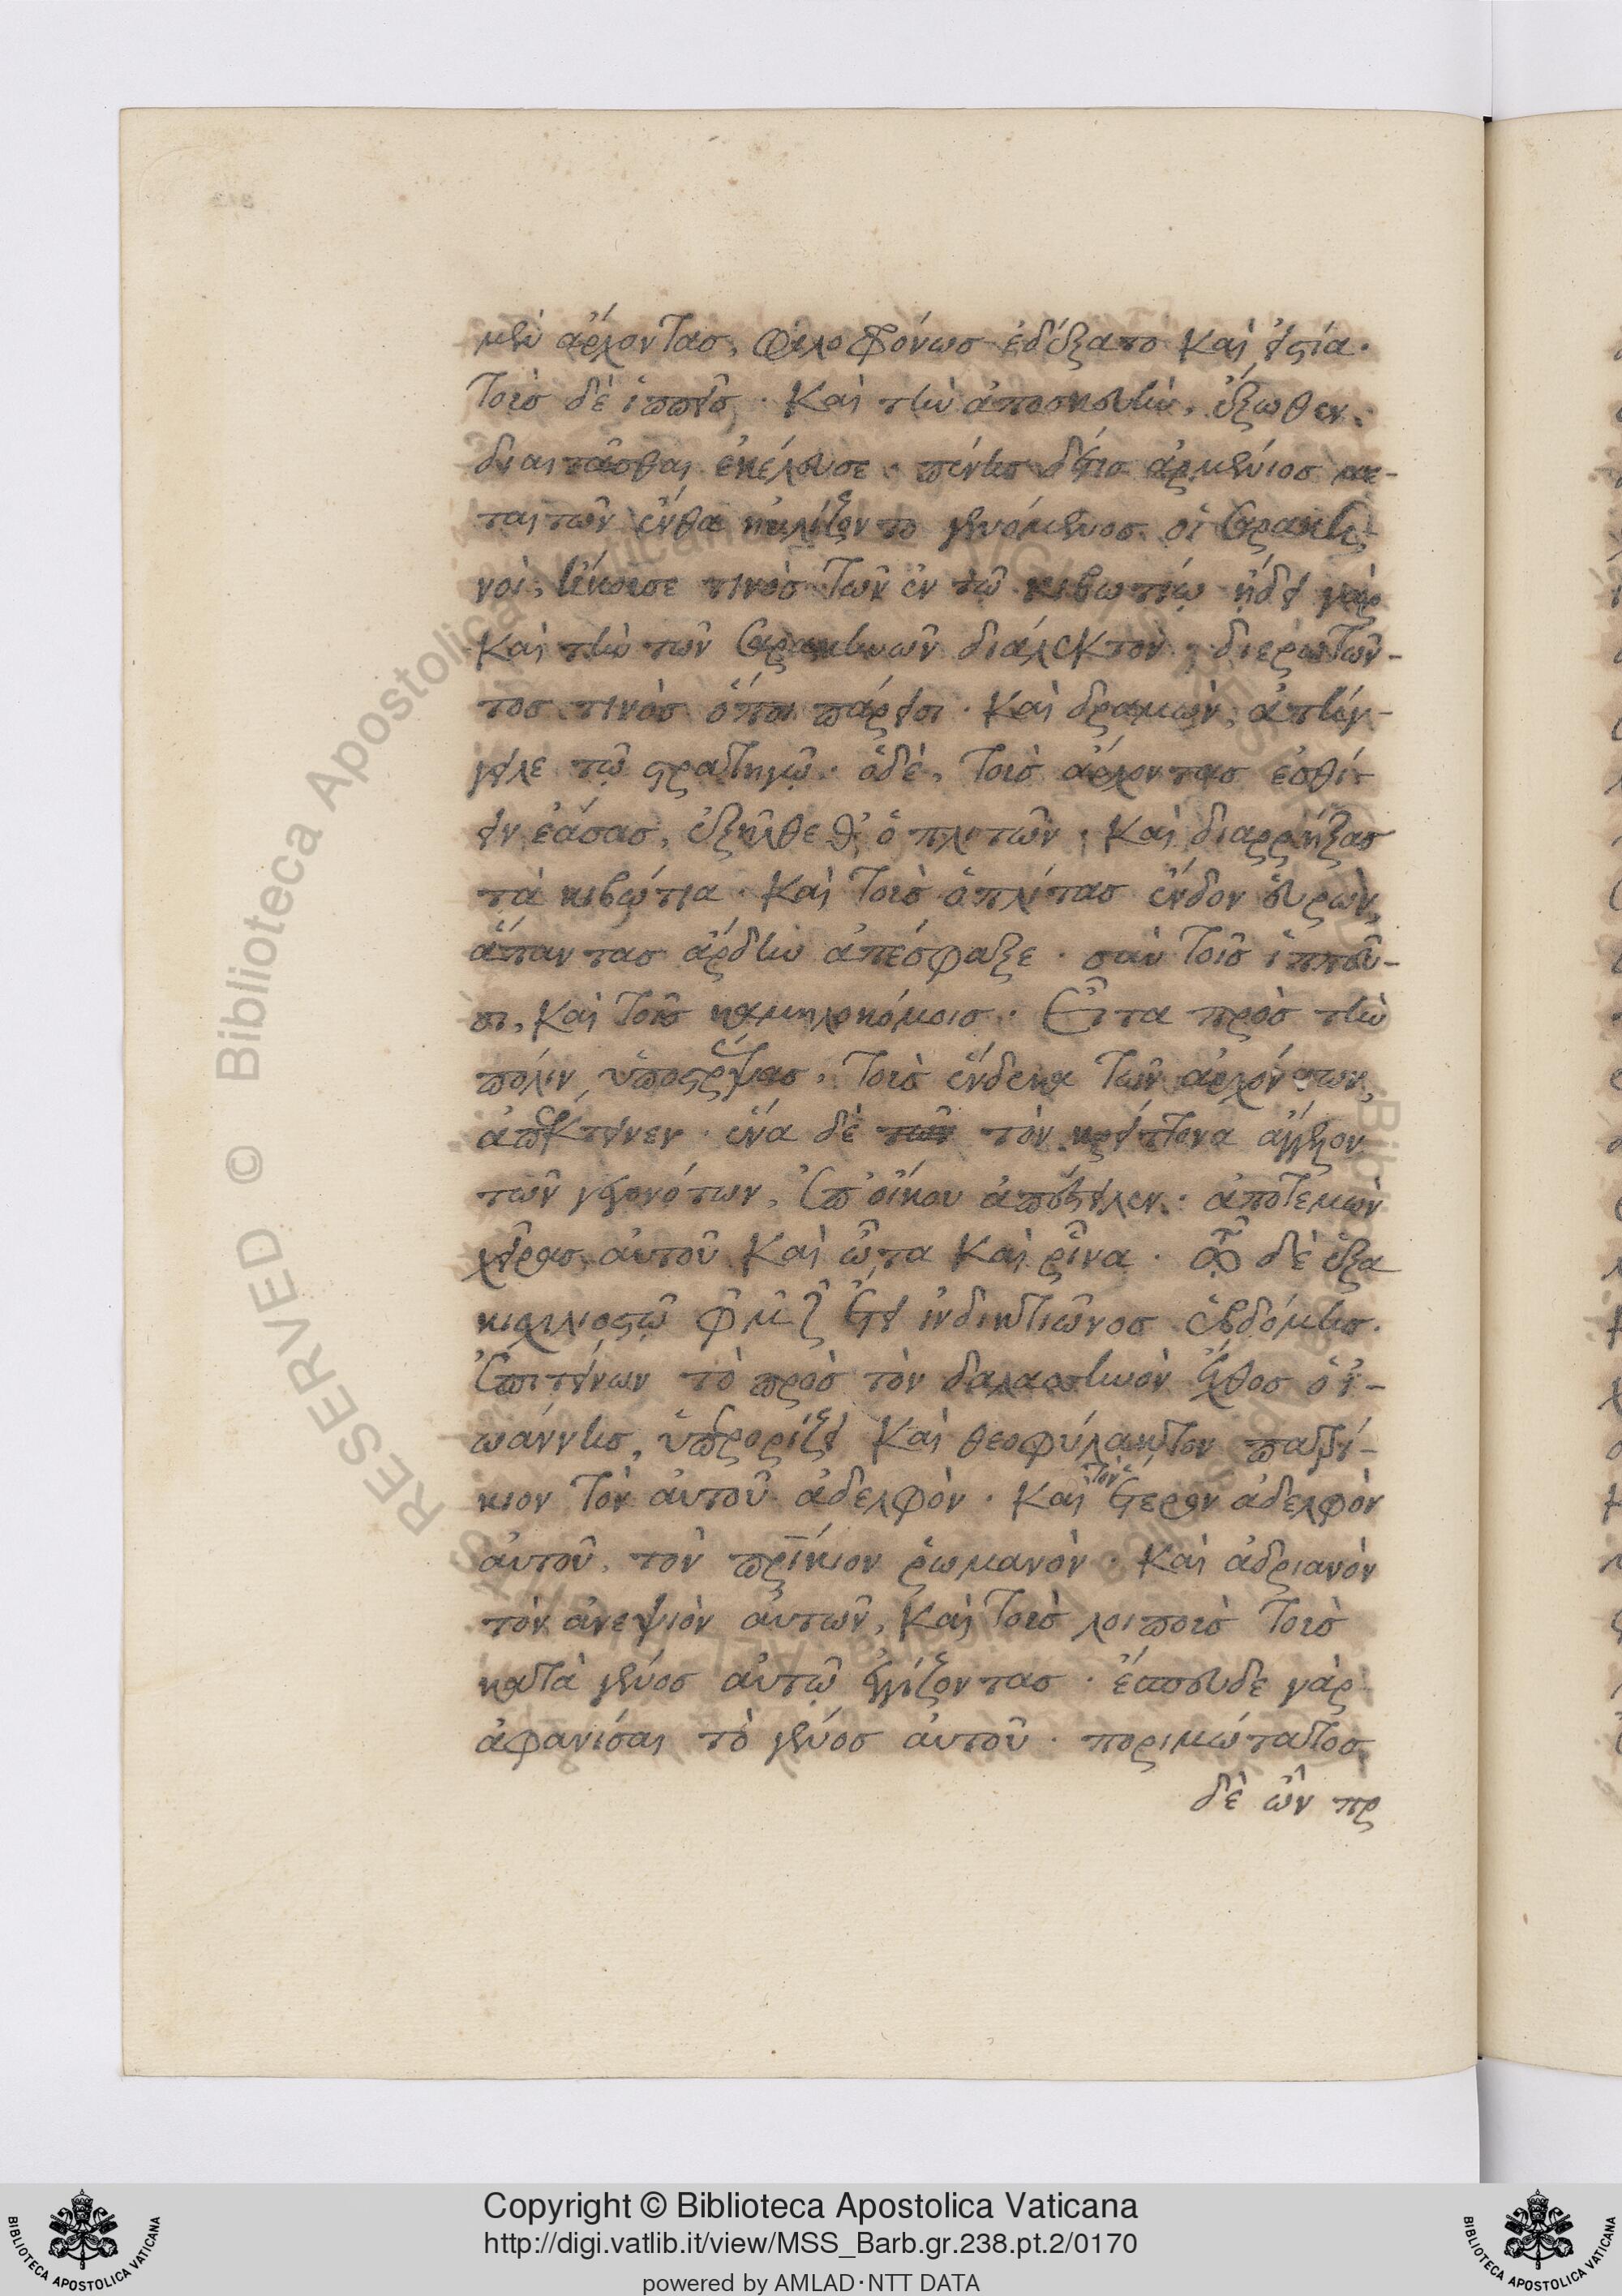 μὲν ἄρχοντας, φιλοφρόνως ἐδέξατο καὶ εἱστία.
τοὺς δὲ ἱππεῖς. καὶ τὴν ἀποσκευὴν, ἔξωθεν
διαιτᾶσθαι ἐκέλευσε. πένης δέ τις ἀρμένιος
ταιτῶν ἔνθα ηὐλίζοντο γενόμενος οἱ σαρακη-
νοὶ, ἤκουσέ τινος τῶν ἐν τῷ κιβωτίῳ ᾔδει γὰρ
καὶ τὴν τῶν σαρακηνῶν διάλεκτον, διερωτῶν-
τος τινὸς ὅποι πάρεισι. καὶ δραμὼν, ἀπήγ-
γειλε τῷ στρατηγῷ. ὁ δὲ, τοὺς ἄρχοντας ἐσθί-
ειν ἐάσας, ἐξῆλθε μεθ' ὁπλιτῶν, καὶ διαρρήξας
τὰ κιβώτια. καὶ τοὺς ὁπλίτας ἔνδον εὑρὼν,
ἅπαντας ἄρδην ἀπέσφαξε. σὺν τοῖς ἱππεῦ-
σι, καὶ τοῖς καμηλοκόμοις. Εἶτα πρὸς τὴν
πόλιν ὑποστρέψας, τοὺς ἕνδεκα τῶν ἀρχόντων,
ἀπέκτεινεν. ἕνα δὲ τῶν τὸν κρείττονα ἄγγελον
τῶν γεγονότων, ἐπ' οἴκου ἀπέστειλεν. ἀποτεμὼν
χεῖρας αὐτοῦ καὶ ὦτα καὶ ῥῖνα. τῷ δὲ ἑξα
κισχιλιοστῷ φ μ ζ ἔτει ἰνδικτιῶνος ἑβδόμης.
ἐπιτείνων τὸ πρὸς τὸν δαλασσηνὸν ἔχθος ὁ ἰ-
ωάννης, ὑπερορίζει καὶ θεοφύλακτον πατρί-
κιον τὸν αὐτοῦ ἀδελφὸν. καὶ τὸν ἕτερον ἀδελφὸν
αὐτοῦ, τὸν πρίκιον ῥωμανὸν. καὶ ἀδριανὸν
τὸν ἀνεψιὸν αὐτῶν, καὶ τοὺς λοιποὺς τοὺς
κατὰ γένος αὐτῷ ἐγγίζοντας. ἔσπευδε γὰρ
ἀφανίσαι τὸ γένος αὐτοῦ. ποριμώτατος
δὲ ὢν πρ